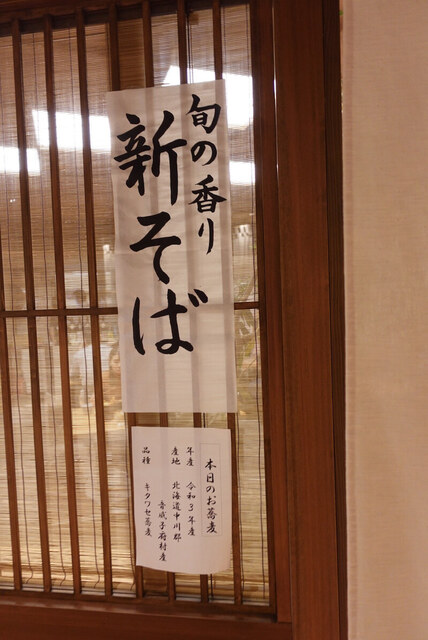 旬の香り
新そば
本日のお蕎麦
年産 令和3年産
産地 北海道中川郡
音威子府村産
品種 キタワセ蕎麦